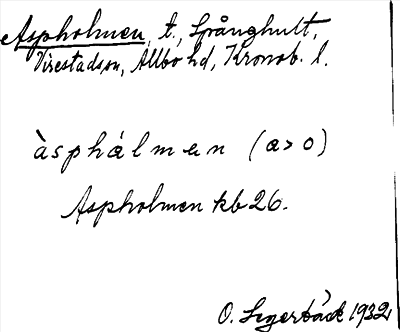 Aspholmen, t., Spånghult,
Virestad sn, Allbo hd, Kronob. l.
àsphálmen (a>o)
Aspholmen kb 26.
O. Segerbäck 1932